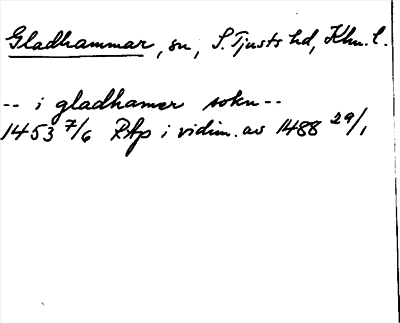 Gladhammar, sn, S. Tjusts hd, Klm. l.
-- i gladhamer sokn --
1453 7/6 RAp i vidim. av 1488 29/1